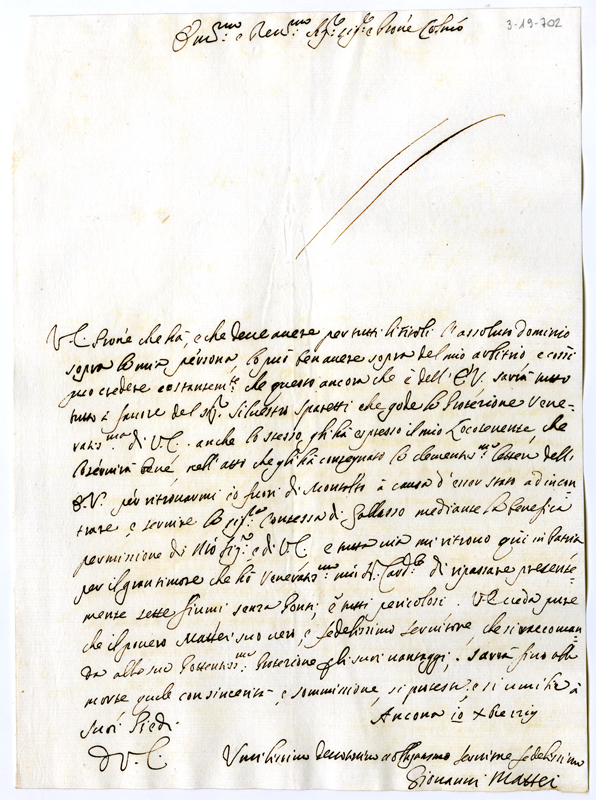 3-19-702
Em.mo e Rev.mo Sig.r Sig.r e Prone Col.mo
V. E. Prone che hà, e che deve avere per tutti li titoli l'assoluto dominio
sopra la mia persona lo può ben avere sopra del mio arbitrio e così
può credere costantem.te che questo ancora che è dell'E. V. sarà tutto
tutto à favore del Sig.r Silvestro Spasetti che gode la Protezione Vene-
ratis.ma di V. E. anche lo stesso gli hà espresso il mio Locotenente che
lo servirà bene nell'atto che gli hà consegnato la clementis.ma lettera dell'
E. V. per ritrovarmi io fuori di Montolto à causa d'esser stato ad incon-
trare, e servire la Sig.ra Contessa di Gallasso mediante la benefica
permissione di Mio Sig.re e di V. E. e tutta via mi ritrovo quì in Patria
per il gran timore che hò Veneratis.mo mio Sig. Card.le di ripassare presente-
mente sette fiumi senza Ponti, e tutti pericolosi. V. E. creda pure
che il povero Mattei suo vero, e fedelissimo servitore, che si raccoman-
da alla sua Potentis.ma Protezione gli suoi vantaggi. Sarà fino alla
morte quale con sincerità, e sommissione, si protesta, e si umilia à
suoi Piedi. Ancona 10 Xbre 1719
D V. E.
Umilissimo devotissimo obligatissmo servitore fedelissimo
Giovanni Mattei